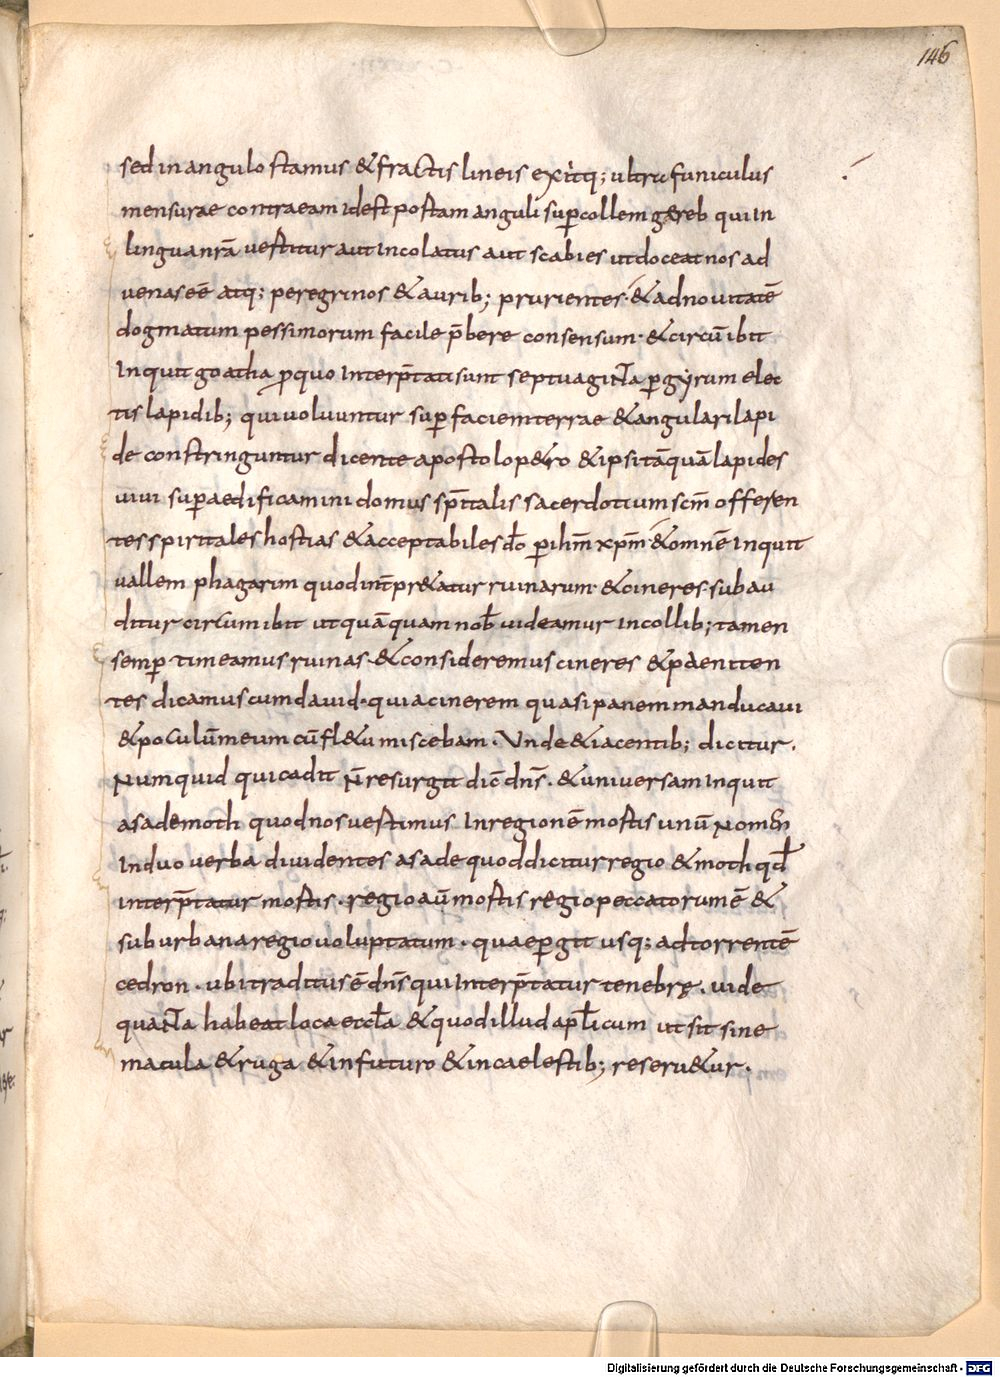 146
sed in angulo stamus & fractis lineis exitq; ultra funiculus
mensurae contra eam idest postam anguli sup collem gareb qui in
lingua nrā vertitur aut incolatus aut scabies ut doceat nos ad
venas eē atq; peregrinos & aurib; prurientes · & ad novitatē
dogmatum pessimorum facile p̄bere consensum · & circū ibit
inquit goatha pro quo interp̄tati sunt septuaginta p gyrum elec
tis lapidib; qui voluuntur sup faciem terrae & angulari lapi
de constringuntur dicente apostolo p&ro & ipsi tāquā lapides
uiui sup aedificamini domus sp̄italis sacerdotium scm̄ offeren
tes spiritales hostias & acceptabiles dō p ihm̄ xpm̄ & omnē inquit
vallem phagarim quod int̄pr&atur ruinarum · & cineres · subau
ditur circumibit ut quāquam nob uideamur in collib; tamen
semp timeamus ruinas · & consideremus cineres & paeniten
tes dicamus cum dauid · quia cinerem quasi panem manducaui
& poculū meum cū fl&u miscebam · Unde & iacentib; dicitur .
Numquid qui cadit n̄ resurgit dic̄ dn̄s . & universam inquit
asademoth quod nos vertimus in regionē mortis unū nomen
in duo verba dividentes asade quod dicitur regio & moth qd
interp̄tatur mortis . regio aū mortis regio peccatorum ē &
suburbana regio voluptatum . quae pergit usq; ad torrentē
cedron . ubi traditus ē dn̄s qui interp̄tatur tenebrę . uide
quanta habeat loca eccla & quod illud aplicum ut sit sine
macula & ruga & in futuro & in caelestib; reseru&ur .
Digitalisierung gefördert durch die Deutsche Forschungsgemeinschaft - DFG